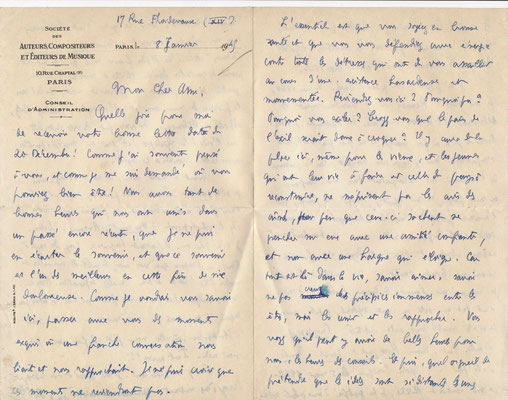 17 Rue
SOCIÉTÉ
DES
AUTEURS, COMPOSITEURS
ET ÉDITEURS DE MUSIQUE
10, RUE CHAPTAL
PARIS
CONSEIL
D'ADMINISTRATION
PARIS, le 8 Janvier 19
Mon cher Ami,
Quelle joie pour moi
de recevoir votre bonne lettre datée du
20 Décembre! Comme j'ai souvent pensé
à vous, et comme je me suis demandé où vous
pouviez bien être! Nous avons tant de
bonnes heures qui nous ont unis dans
un passé encore récent, que je ne puis
en écarter le souvenir, et que ce souvenir
est l'un des meilleurs en cette fin de vie
douloureuse. Comme je voudrais vous savoir
ici, passer avec vous des moments
exquis où une franche conversation nous
liait et nous rapprochait. Je ne puis croire que
ces moments ne reviendront pas.
L'essentiel est que vous soyez en bonne
santé et que vous vous défendiez avec
contre toutes les détresses qui ont dû vous assaillir
au cours d'une existence hasardeuse et
mouvementée. Reviendrez-vous ici? Pourquoi pas?
Pourquoi vous exiler? Croyez-vous que le pain de
l'exil serait doux à croquer? Il y aura de la
place ici, même pour les vieux, et les jeunes
qui ont leur vie à faire et celle du pays à
reconstruire, ne méprisent pas les avis des
aînés, pour peu que ceux-ci sachent se
pencher vers eux avec une amitié confiante,
et non avec une hargne qui éloigne. Car
tout est là dans la vie, savoir aimer, savoir
ne pas creuser des précipices immenses entre les
êtres, mais les unir et les rapprocher. Vous
voyez qu'il peut y avoir de belles heures pour
nous, les heures de conseils. Et puis, quel orgueil de
prétendre que les idées sont si distantes